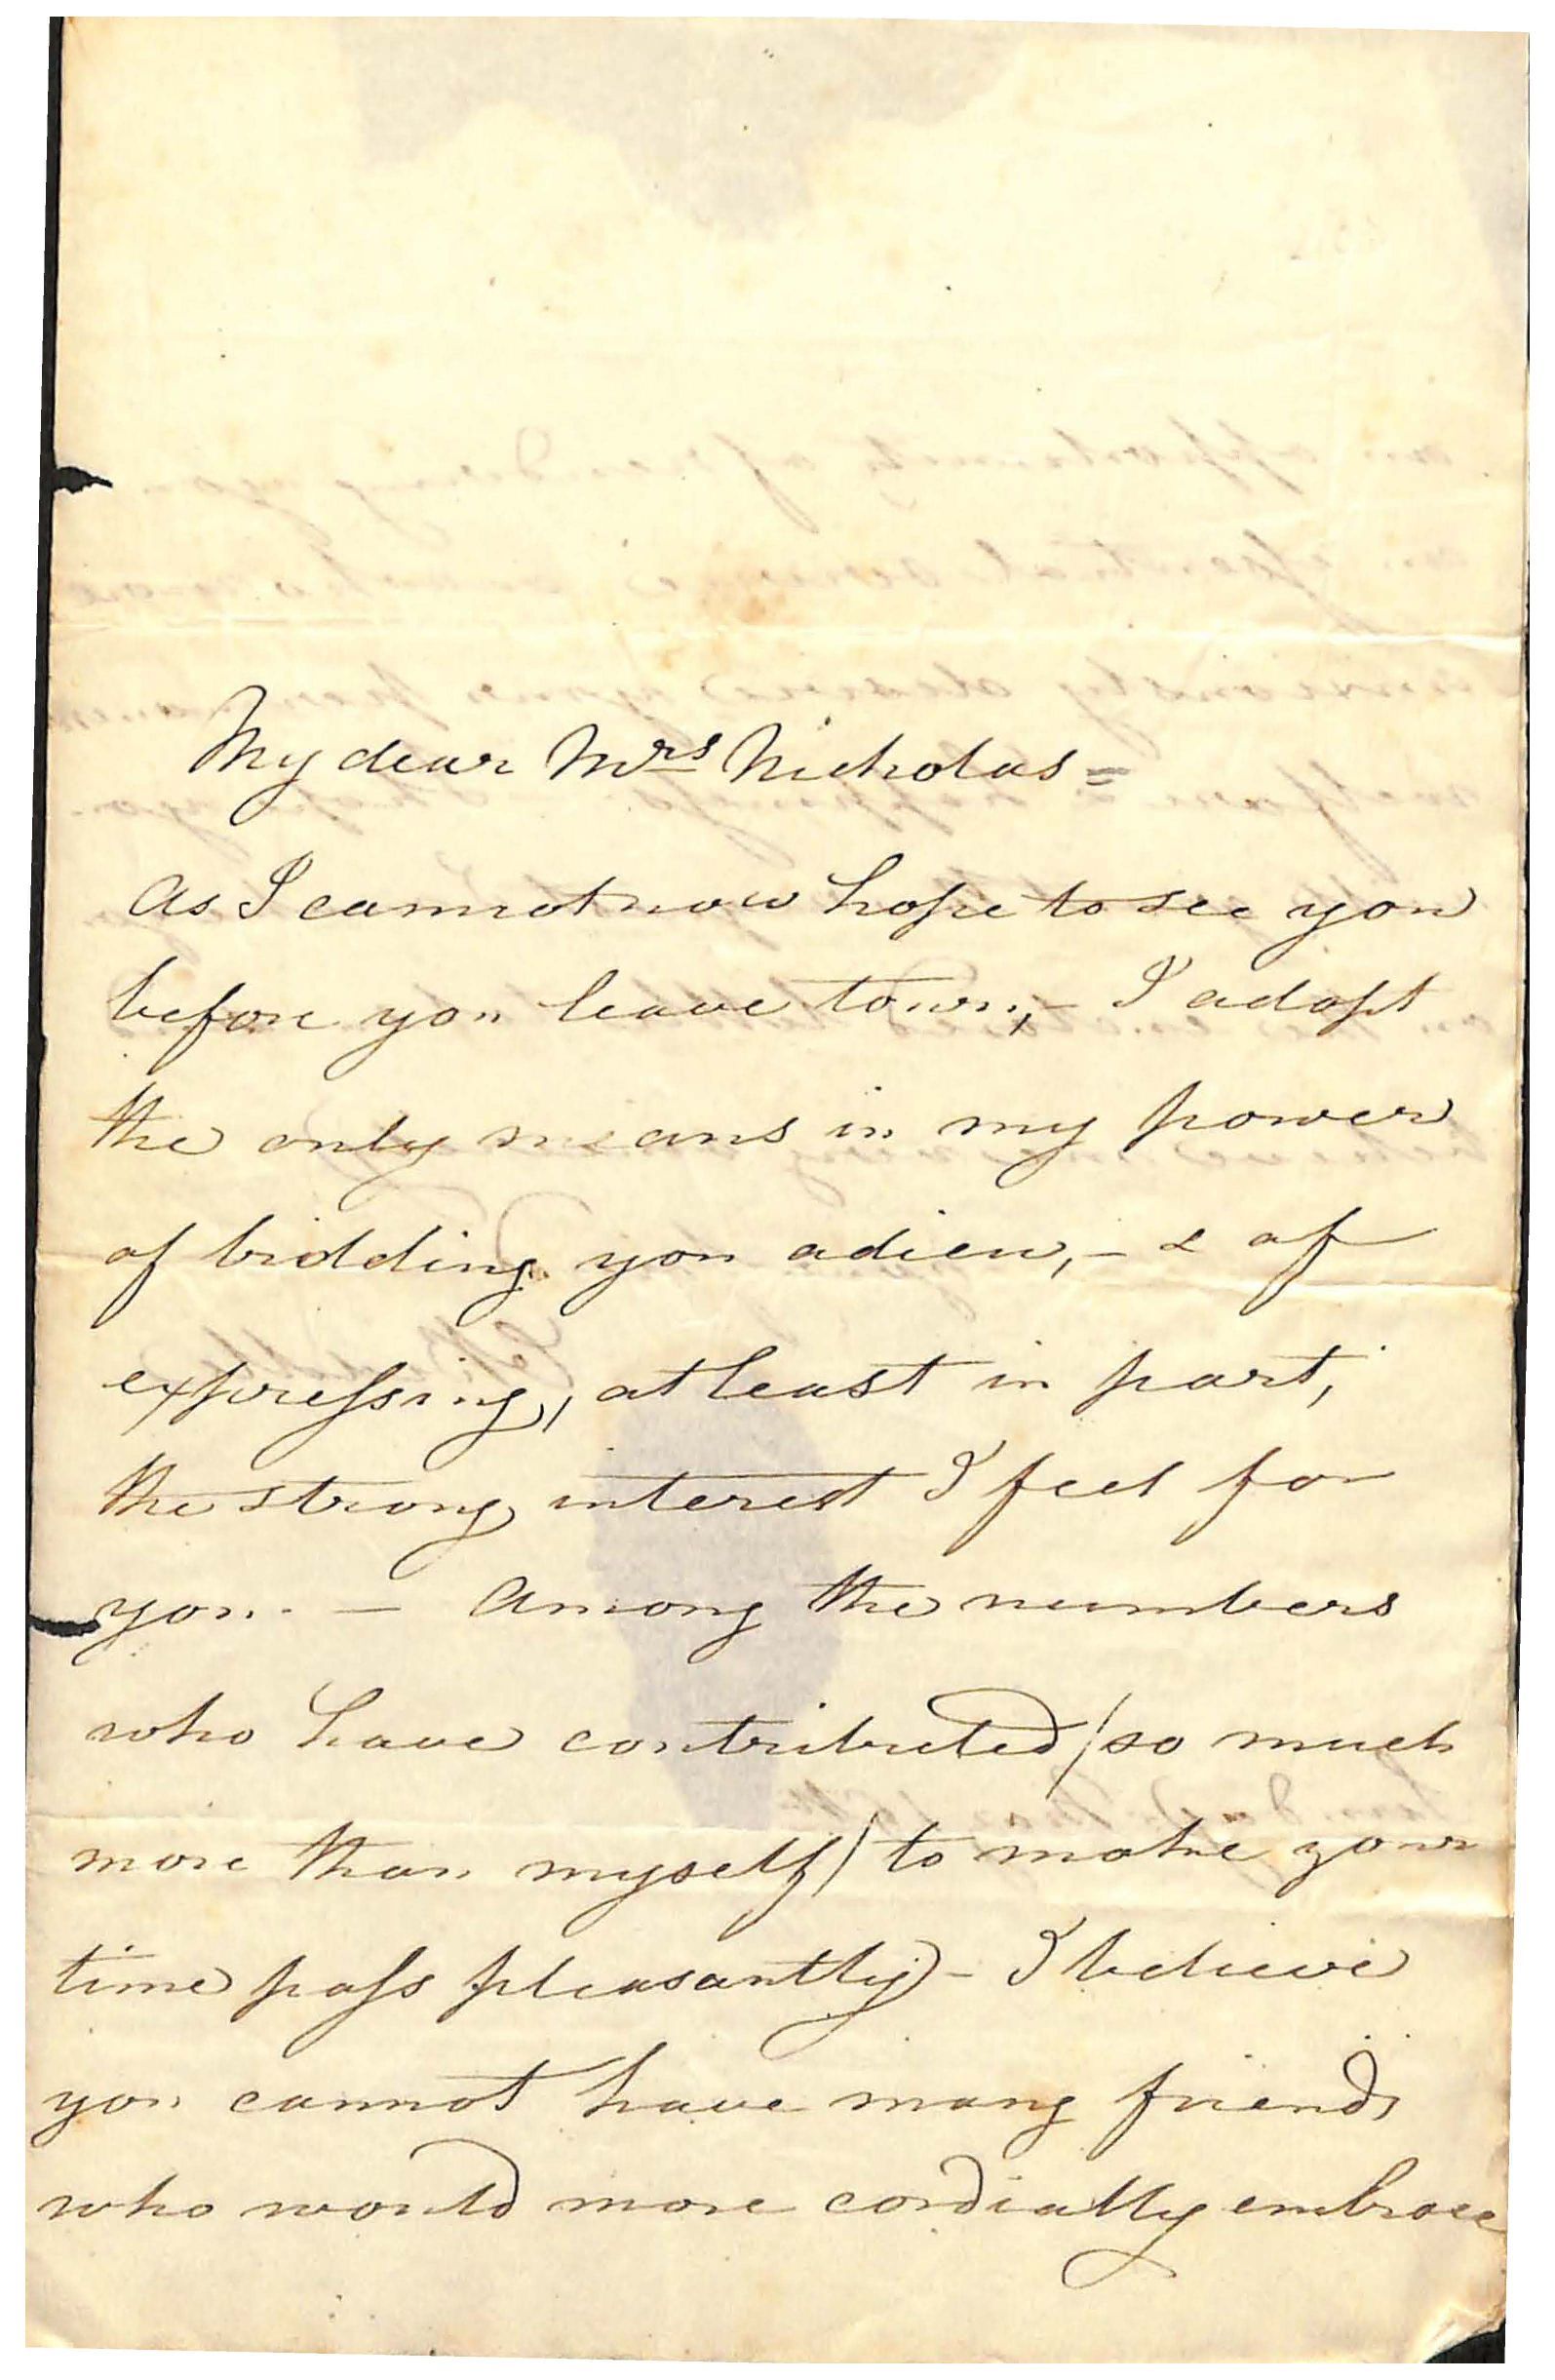 My dear Mrs Nicholas =
As I cannot now hope to see you
before you leave town, - I adopt
the only means in my power
of bidding you adieu, - & of
expressing, at least in part,
the strong interest I feel for
you. — Among the numbers
who have contributed (so much
more than myself) to make your
time pass pleasantly - I believe
you cannot have many friends
who would more cordially embrace